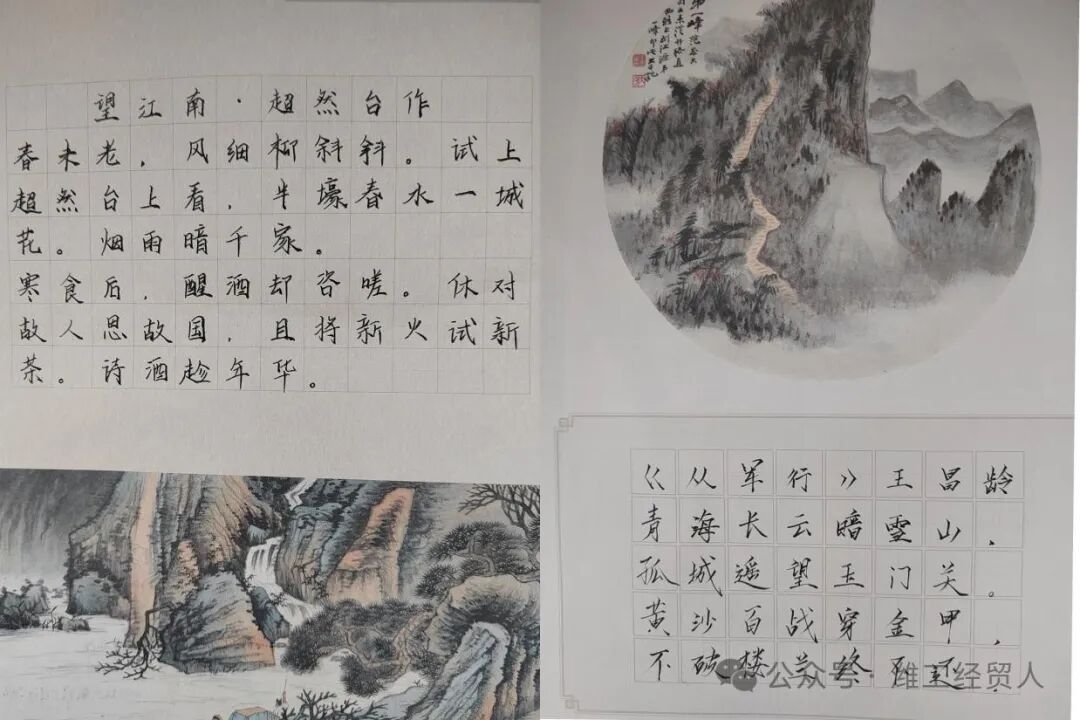 望江南·超然台作
春未老，风细柳斜斜。试上
超然台上看，半壕春水一城
花。烟雨暗千家。
寒食后，醒酒却咨嗟。休对
故人思故国，且将新火试新
茶。诗酒趁年华。
《从军行》王昌龄
青海长云暗雪山，
孤城遥望玉门关。
黄沙百战穿金甲，
不破楼兰终不还.
公众号·雄工经贸人